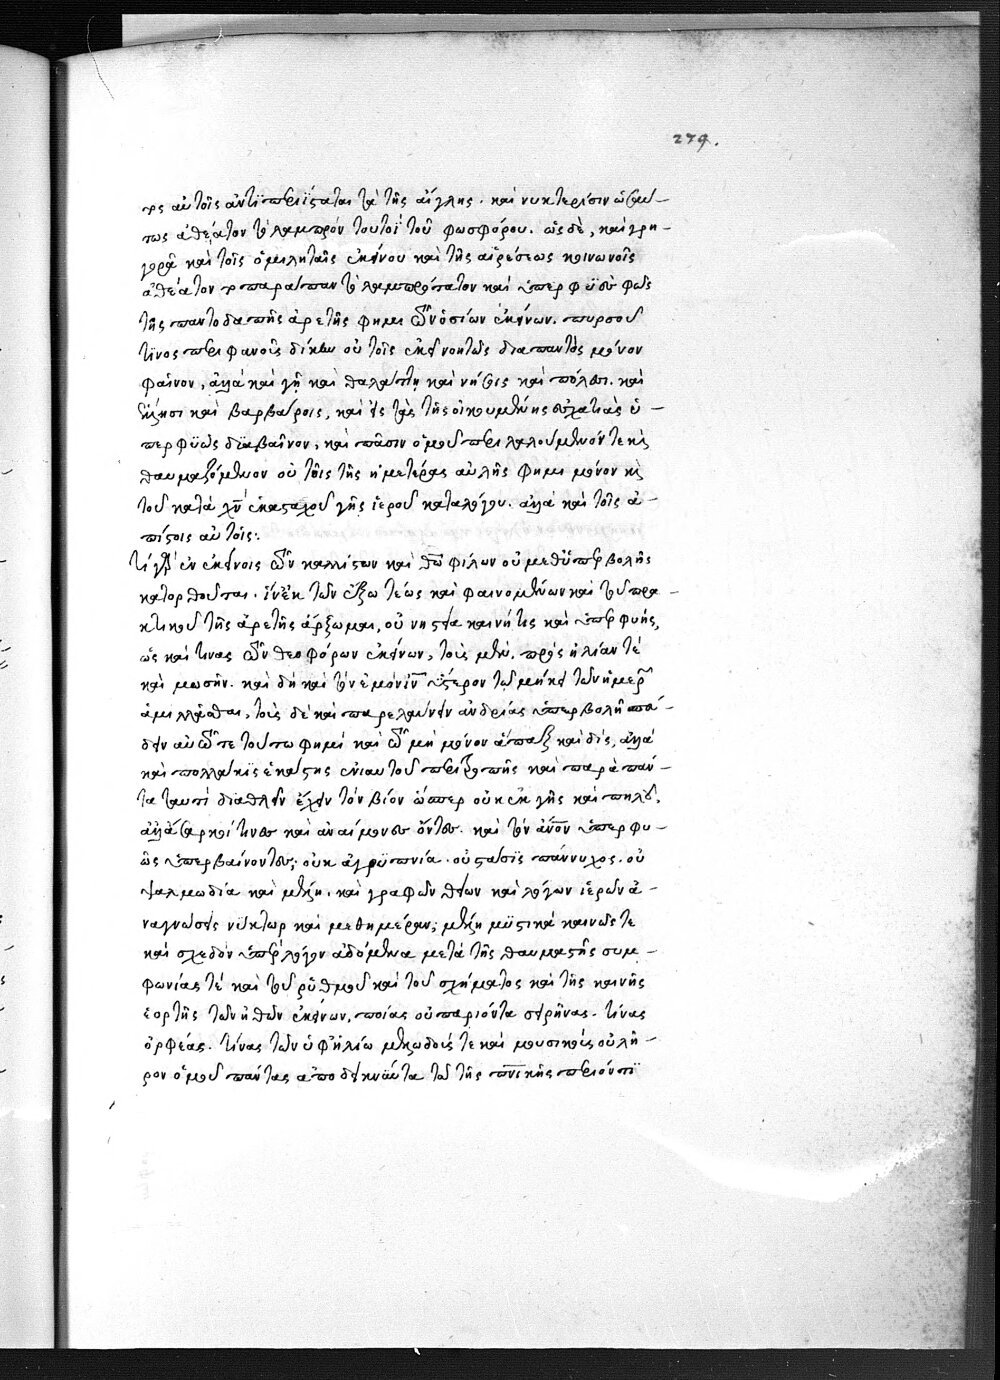 274.
ρς αὐτοῖς ἀντιπεριΐσταται τὰ τῆς αἴγλης. καὶ νυκτερίσιν ὡσαύ-
τως ἀθέατον τὸ λαμπρὸν τουτοῒ τοῦ φωσφόρου. ὡς δὲ, καὶ γρη-
γορᾶ καὶ τοῖς ὁμιληταῖς ἐκείνου καὶ τῆς αἱρέσεως κοινωνοῖς
ἀθέατον τὸ παράπαν τὸ λαμπρότατον καὶ ὑπερφυὲς φῶς
τῆς παντοδαπῆς ἀρετῆς φημι τῶν ὁσίων ἐκείνων. πυρσοῦ
τινος περιφανοῦς δίκην οὐ τοῖς ἐκεῖ διαπαντὸς μόνον
φαῖνον, ἀλλὰ καὶ γῆ καὶ θαλάττη καὶ νήσοις καὶ πόλεσι. καὶ
ἕλλησι καὶ βαρβάροις, καὶ εἰς τὰς τῆς οἰκουμένης ἐσχατιὰς ὑ-
περφυῶς διαβαῖνον, καὶ πᾶσιν ὁμοῦ περιλαλούμενόν τε κὶ
θαυμαζόμενον οὐ τοῖς τῆς ἡμετέρας αὐλῆς φημι μόνον κὶ
τοῦ κατὰ χν ἑκασταχοῦ γῆς ἱεροῦ καταλόγου. ἀλλὰ καὶ τοῖς ἀ-
πίστοις αὐτοῖς:
τί γὰρ ἐν ἐκείνοις τῶν καλλίστων καὶ θῶ φίλων οὐ μεθ' ὑπερβολῆς
κατορθοῦται. ἵν' ἐκ τῶν ἔξω τέως καὶ φαινομένων καὶ τοῦ πρα-
κτικοῦ τῆς ἀρετῆς ἄρξωμαι, οὐ νηστεία καινή τις καὶ ὑπερφυής,
ὡς καί τινας τῶν θεοφόρων ἐκείνων, τοὺς μὲν. πρὸς ἠλίαν τὲ
καὶ μωσῆν. καὶ δὴ καὶ τὸν ἐμὸν ιν ὕστερον τῶ μήκει τῶν ἡμερῶν
ἁμιλλᾶσθαι, τοὺς δὲ καὶ παρελαύνειν ἀνδρίας ὑπερβολῆ σπεύ-
δειν αὐτῶν τε τούτω φημὶ καὶ τῶ μὴ μόνον ἅπαξ καὶ δὶς, ἀλλὰ
καὶ πολλάκις ἑκάστης ἐνιαυτοῦ περιτροπῆς καὶ παρὰ πάν-
τα ταυτὶ διαθλεῖν ἕλειν τὸν βίον ὥσπερ οὐκ ἐκ γῆς καὶ πηλοῦ,
ἀλλ' ἄσαρκοί τινες καὶ ἀναίμονες ὄντες. καὶ τὸν ανον ὑπερφυ-
ῶς ὑπερβαίνοντες. οὐκ ἀγρυπνία. οὐ στάσις πάννυχος. οὐ
ψαλμωδία καὶ μέλη. καὶ γραφῶν θείων καὶ λόγων ἱερῶν ἀ-
ναγνώσεις νύκτωρ καὶ μεθημέραν; μέλη μυστικὰ καινῶς τε
καὶ σχεδὸν ὑπὲρ λόγον ἀδόμενα μετὰ τῆς θαυμαστῆς συμ-
φωνίας τὲ καὶ τοῦ ῥυθμοῦ καὶ τοῦ σχήματος καὶ τῆς καινῆς
ἑορτῆς τῶν ἠθῶν ἐκείνων, ποίας οὐ παριόντα σειρῆνας. τίνας
ὀρφέας. τίνας τῶν ὑφ' ἡλίω μελωδούς τε καὶ μουσικοὺς οὐ λῆ-
ρον ὁμοῦ πάντας ἀποδεικνῦντα τῶ τῆς πνικῆς περιόντι